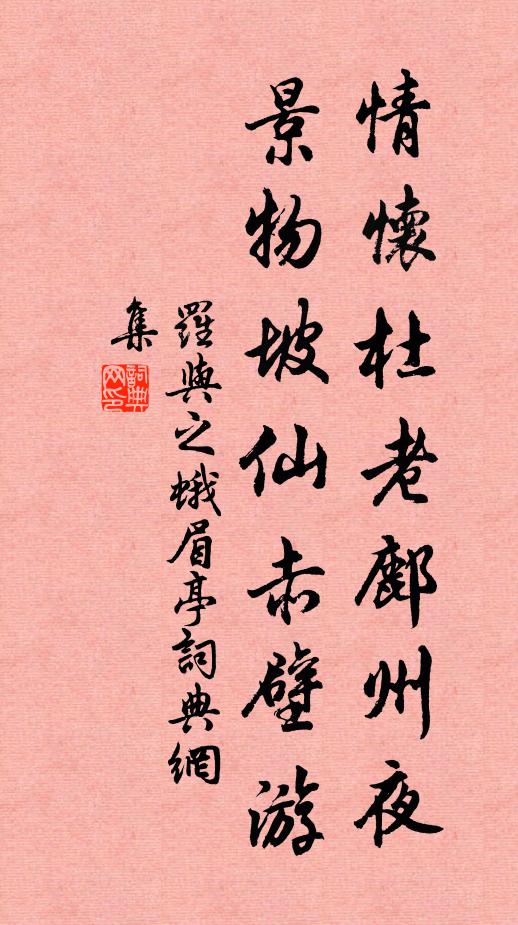 情懷杜老鄜州夜
景物坡仙赤壁游
羅與之蛾眉亭詞典網
集
詞典網印